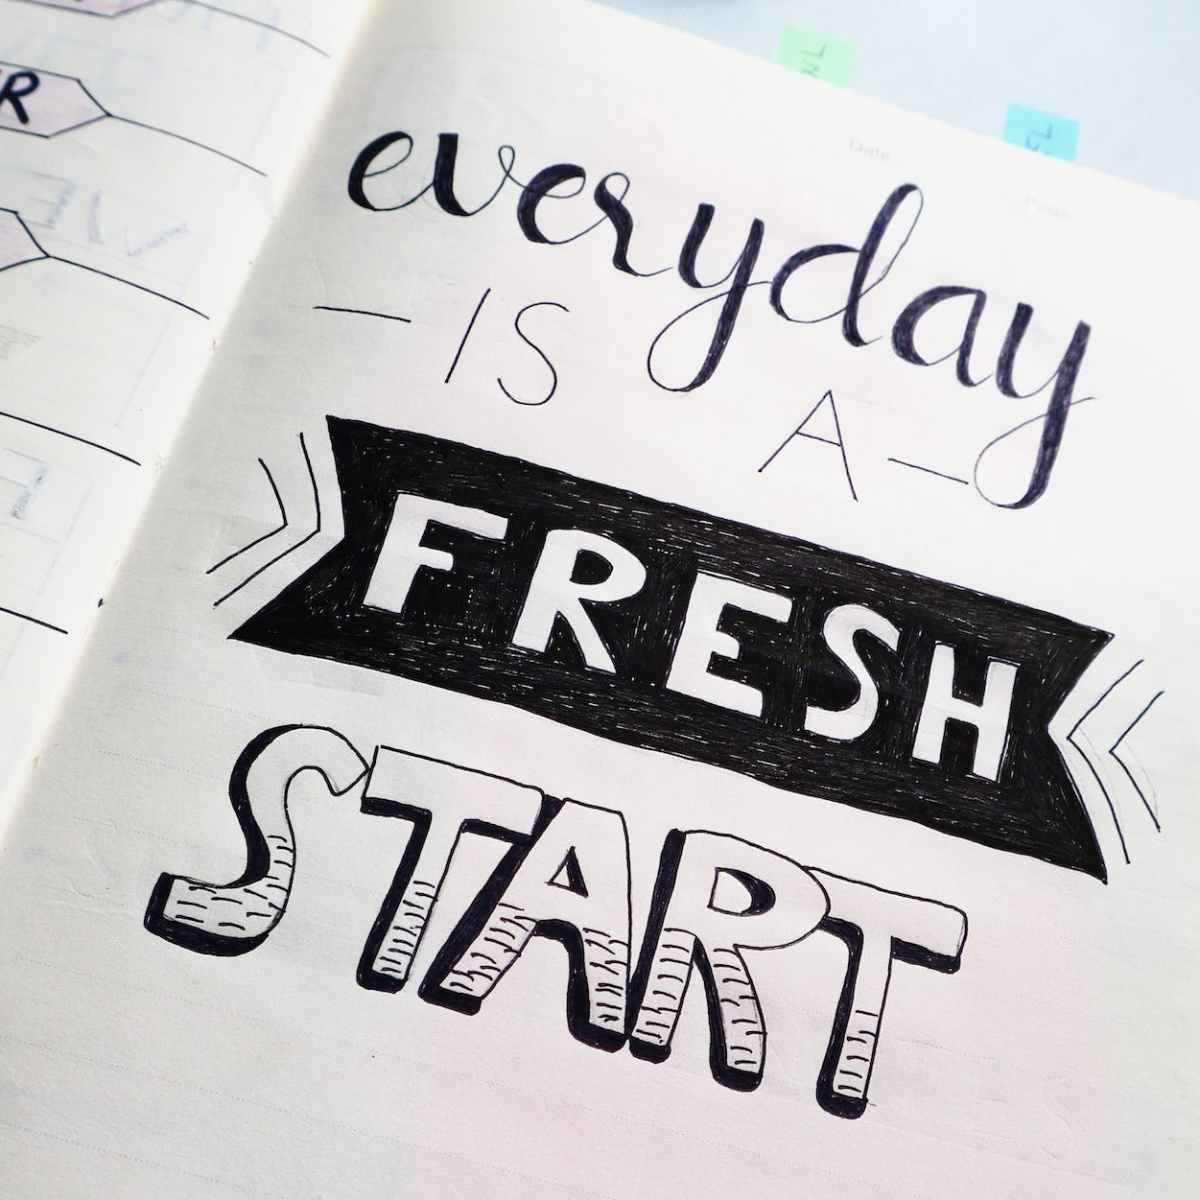 everyday
IS A
FRESH
START
Date
R
JUL